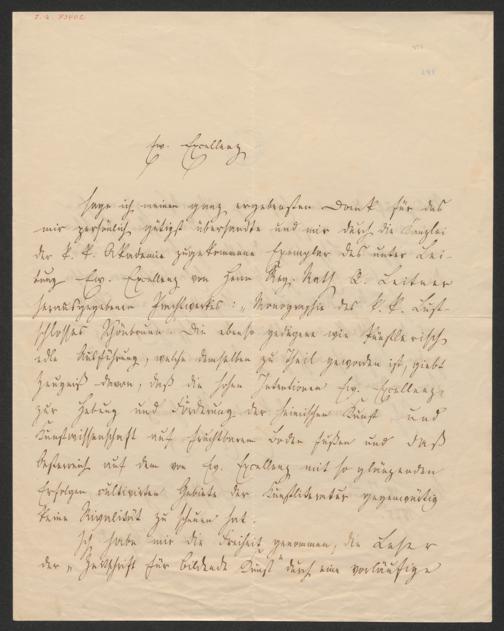 Ew. Excellenz
sage ich meinen ganz ergebensten Dank für das
mir persönlich gütigst übersandte und mir durch die Kanzlei
der k. k. Akademie zugekommene Exemplar des unter Lei-
tung Ew. Excellenz von Herrn Reg. Rath Q. Leitner
herausgegebenen Prachtwerkes: „Monographie des k. k. Lust-
schlosses Schönbrunn. Die ebenso gediegene wie künstlerisch
edle Ausführung, welche demselben zu Theil geworden ist, giebt
Zeugniß davon, daß die hohen Intentionen Ew. Excellenz
zur Hebung und Förderung der heimischen Kunst und
Kunstwissenschaft auf fruchtbarem Boden fußen und daß
Oesterreich auf dem von Ew. Excellenz mit so glänzenden
Erfolgen cultivirten Gebiete der Kunstliteratur gegenwärtig
keine Rivalität zu scheuen hat.
Ich habe mir die Freiheit genommen, die Leser
der „Zeitschrift für bildende Kunst" durch eine vorläufige